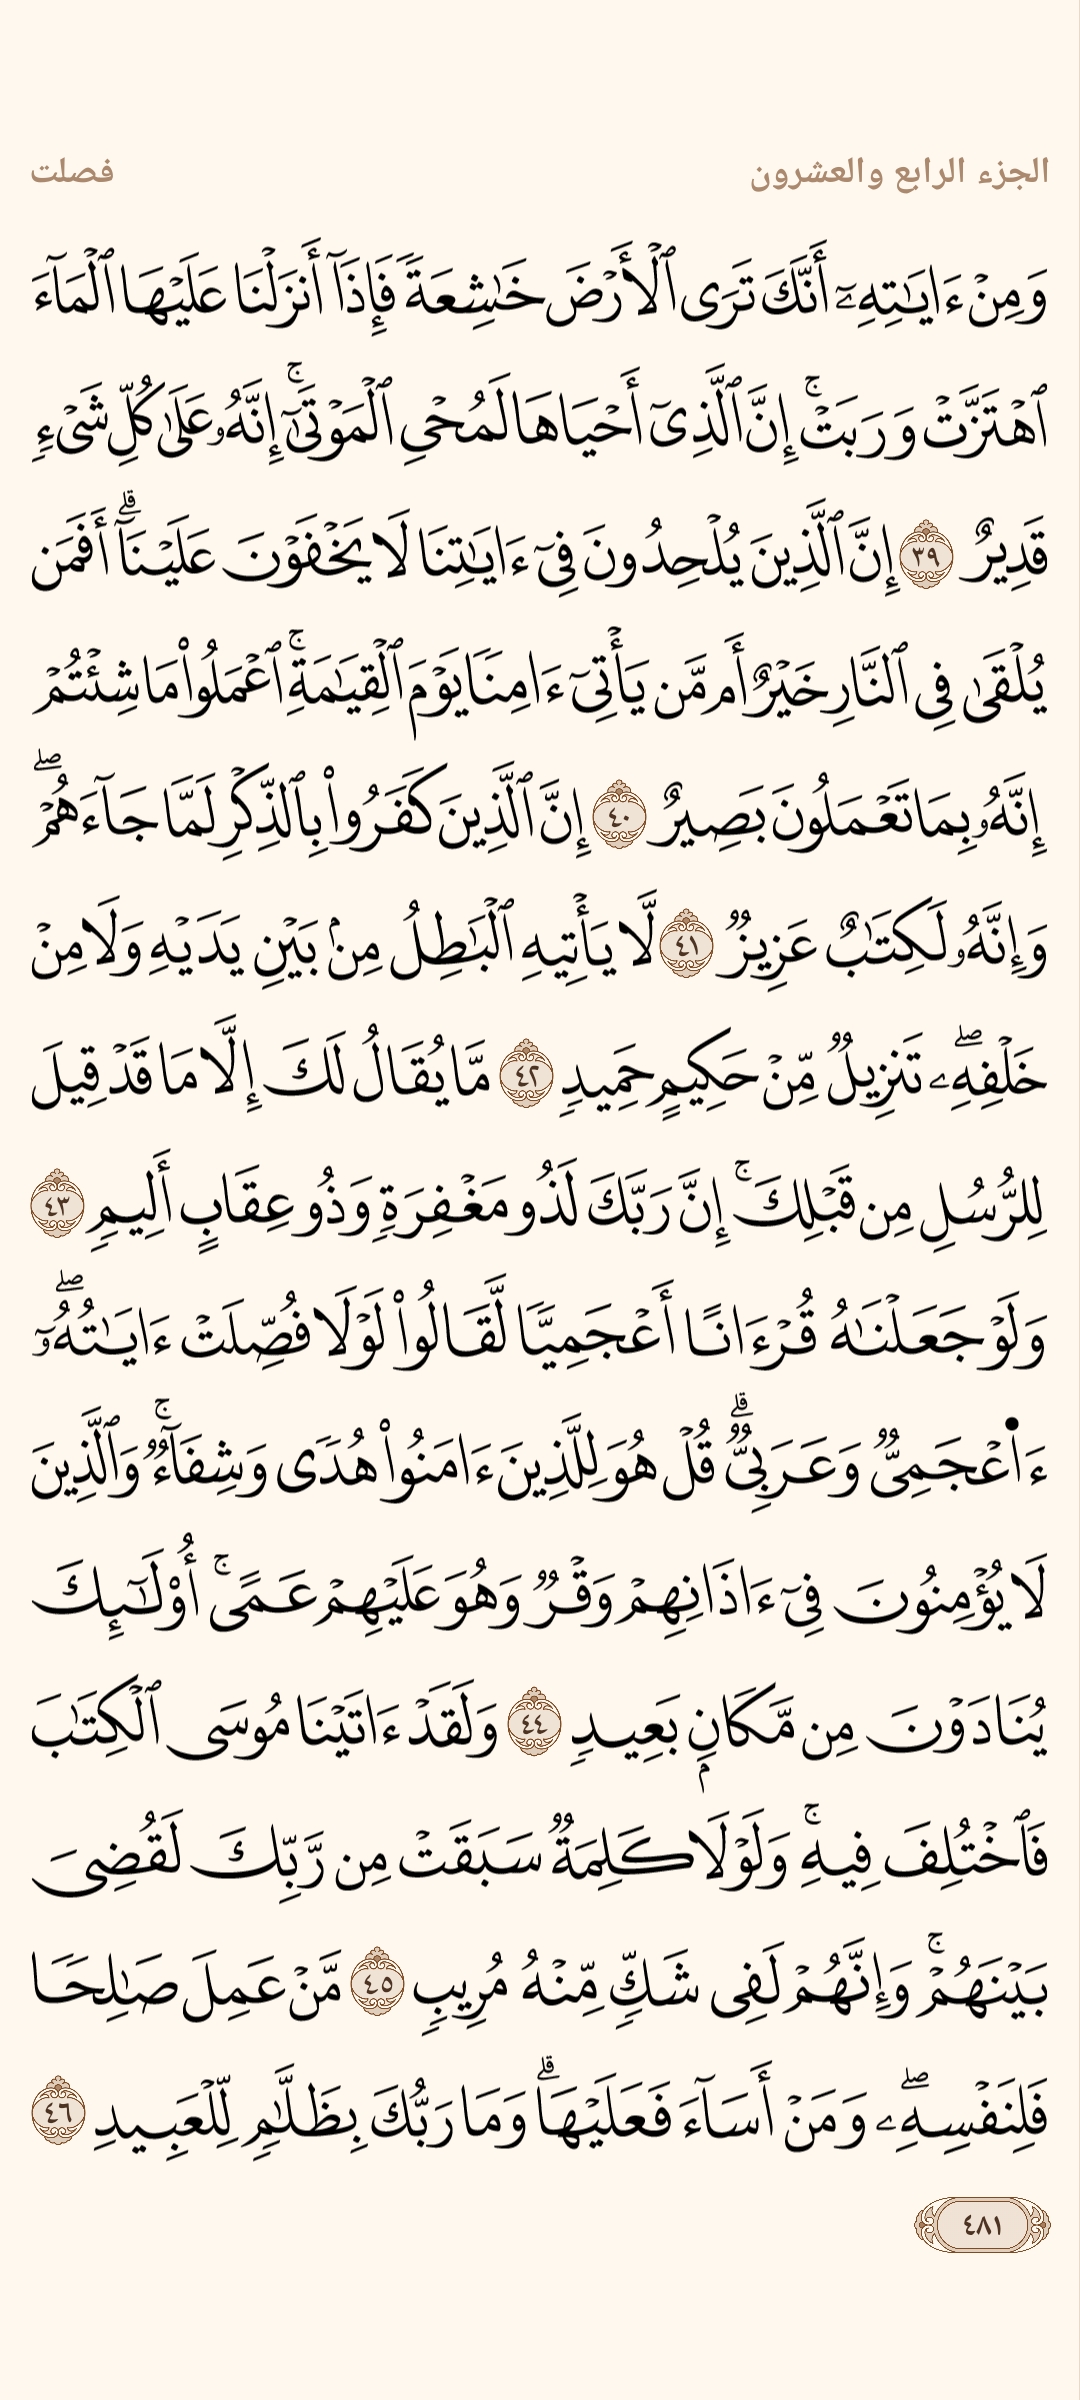 الجزء الرابع والعشرون
فصلت
وَمِنْ ءَايَٰتِهِۦٓ أَنَّكَ تَرَى ٱلْأَرْضَ خَٰشِعَةً فَإِذَآ أَنزَلْنَا عَلَيْهَا ٱلْمَآءَ
ٱهْتَزَّتْ وَرَبَتْ ۚ إِنَّ ٱلَّذِىٓ أَحْيَاهَا لَمُحْىِ ٱلْمَوْتَىٰٓ ۚ إِنَّهُۥ عَلَىٰ كُلِّ شَىْءٍ
قَدِيرٌ ٣٩ إِنَّ ٱلَّذِينَ يُلْحِدُونَ فِىٓ ءَايَٰتِنَا لَا يَخْفَوْنَ عَلَيْنَآ ۗ أَفَمَن
يُلْقَىٰ فِى ٱلنَّارِ خَيْرٌ أَم مَّن يَأْتِىٓ ءَامِنًا يَوْمَ ٱلْقِيَٰمَةِ ۚ ٱعْمَلُوا۟ مَا شِئْتُمْ
إِنَّهُۥ بِمَا تَعْمَلُونَ بَصِيرٌ ٤٠ إِنَّ ٱلَّذِينَ كَفَرُوا۟ بِٱلذِّكْرِ لَمَّا جَآءَهُمْ ۖ
وَإِنَّهُۥ لَكِتَٰبٌ عَزِيزٌ ٤١ لَّا يَأْتِيهِ ٱلْبَٰطِلُ مِنۢ بَيْنِ يَدَيْهِ وَلَا مِنْ
خَلْفِهِۦ ۖ تَنزِيلٌ مِّنْ حَكِيمٍ حَمِيدٍ ٤٢ مَّا يُقَالُ لَكَ إِلَّا مَا قَدْ قِيلَ
لِلرُّسُلِ مِن قَبْلِكَ ۚ إِنَّ رَبَّكَ لَذُو مَغْفِرَةٍ وَذُو عِقَابٍ أَلِيمٍ ٤٣
وَلَوْ جَعَلْنَٰهُ قُرْءَانًا أَعْجَمِيًّا لَّقَالُوا۟ لَوْلَا فُصِّلَتْ ءَايَٰتُهُۥٓ ۖ
ءَا۬عْجَمِىٌّ وَعَرَبِىٌّ ۗ قُلْ هُوَ لِلَّذِينَ ءَامَنُوا۟ هُدًى وَشِفَآءٌ ۚ وَٱلَّذِينَ
لَا يُؤْمِنُونَ فِىٓ ءَاذَانِهِمْ وَقْرٌ وَهُوَ عَلَيْهِمْ عَمًى ۚ أُو۟لَٰٓئِكَ
يُنَادَوْنَ مِن مَّكَانٍۭ بَعِيدٍ ٤٤ وَلَقَدْ ءَاتَيْنَا مُوسَى ٱلْكِتَٰبَ
فَٱخْتُلِفَ فِيهِ ۚ وَلَوْلَا كَلِمَةٌ سَبَقَتْ مِن رَّبِّكَ لَقُضِىَ
بَيْنَهُمْ ۚ وَإِنَّهُمْ لَفِى شَكٍّ مِّنْهُ مُرِيبٍ ٤٥ مَّنْ عَمِلَ صَٰلِحًا
فَلِنَفْسِهِۦ ۖ وَمَنْ أَسَآءَ فَعَلَيْهَا ۗ وَمَا رَبُّكَ بِظَلَّٰمٍ لِّلْعَبِيدِ ٤٦
٤٨١